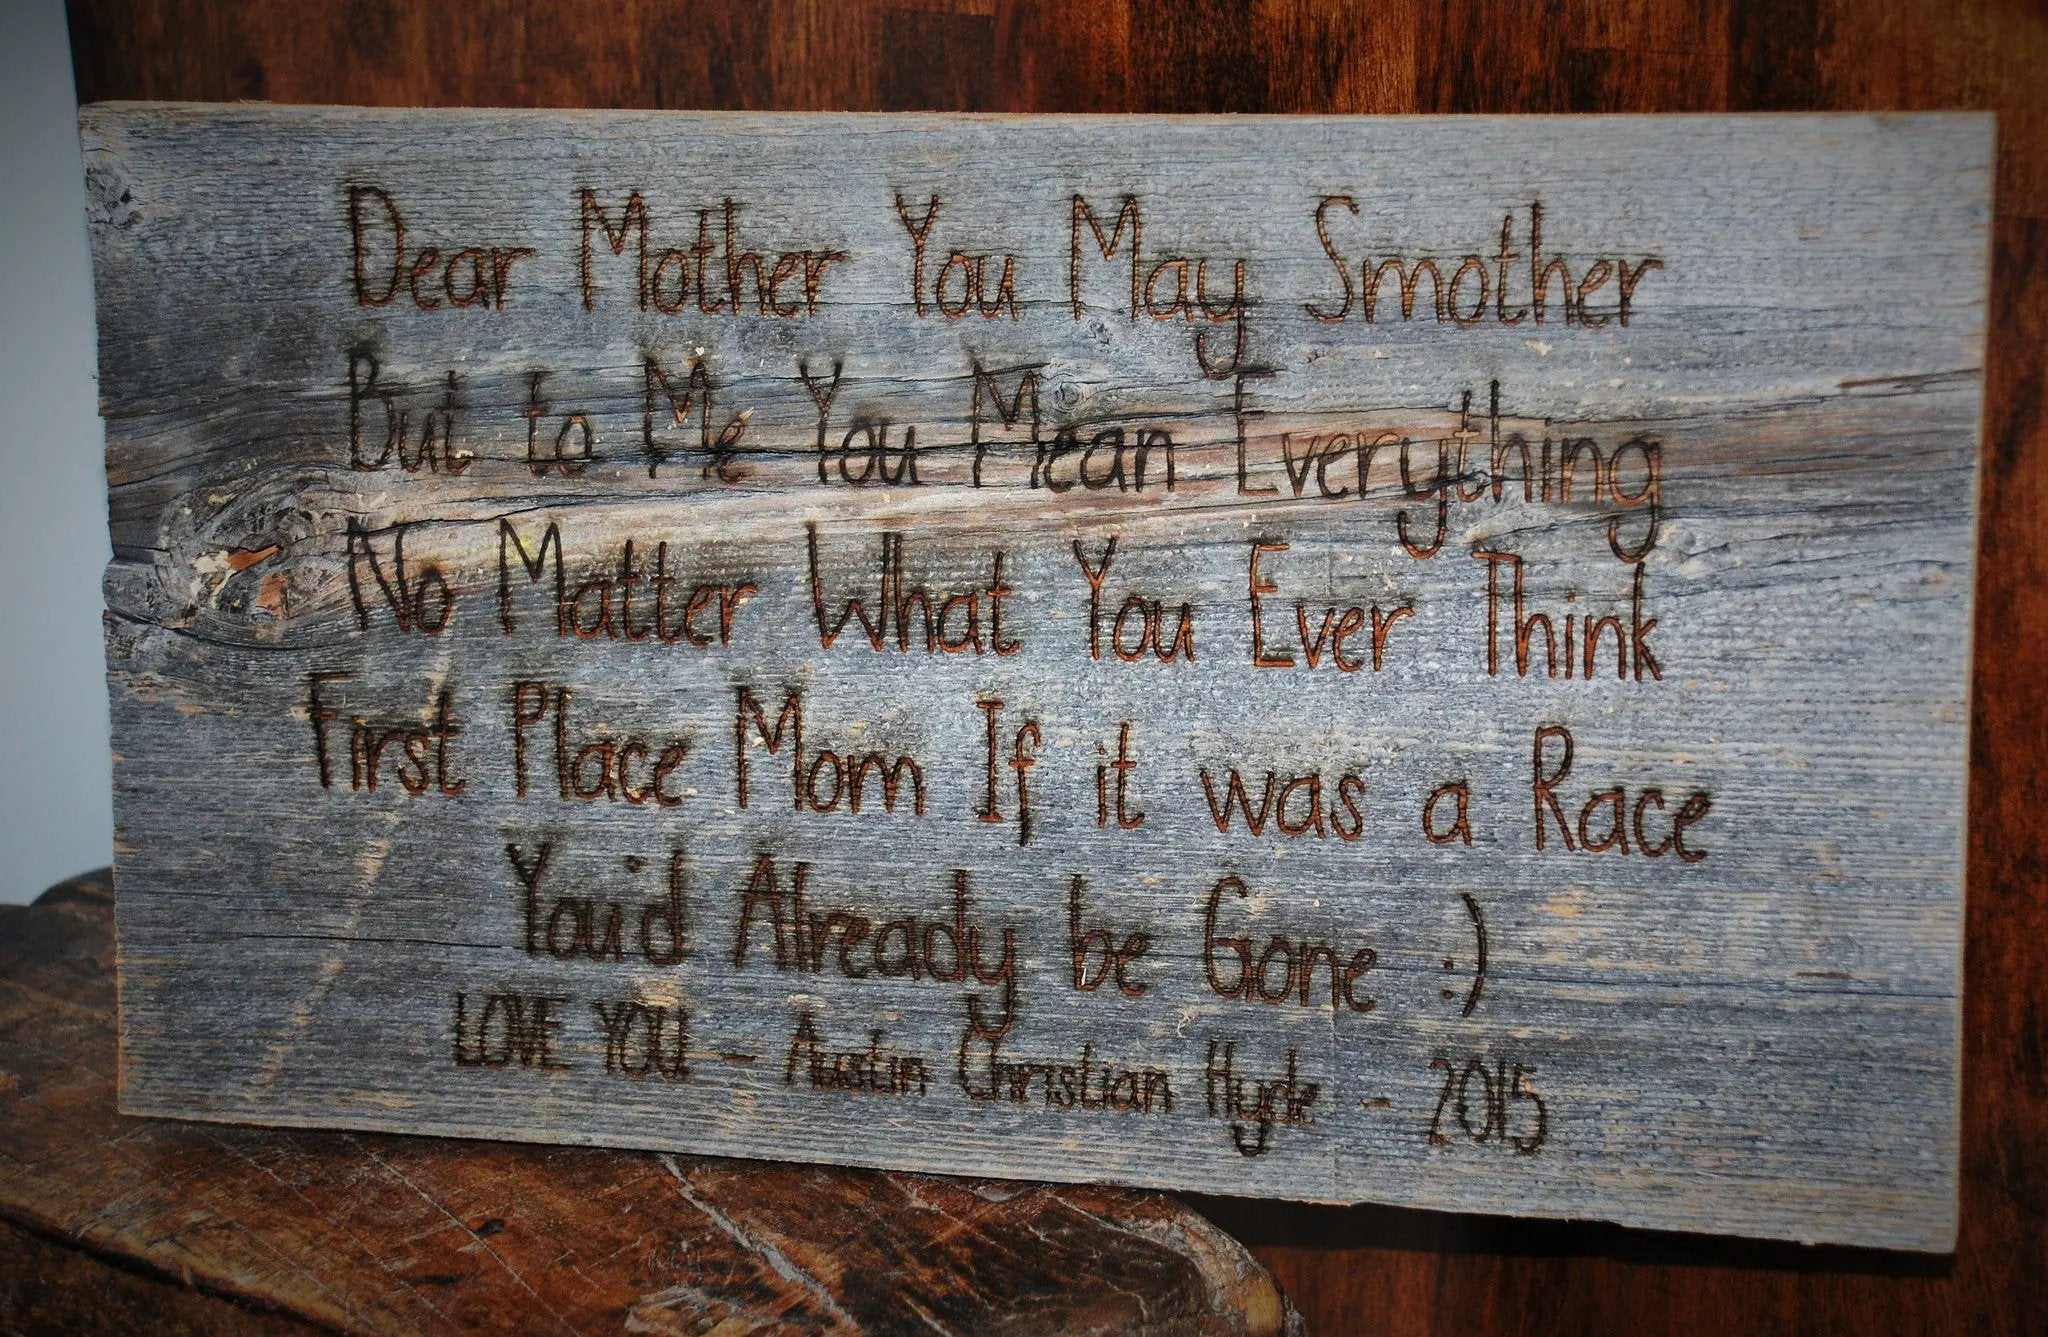 Dear Mother You May Smother
But to Me You Mean Everything
No Matter What You Ever Think
First Place Mom If it was a Race
You'd Already be Gone :)
LOVE YOU - Austin Christian Hyde - 2015